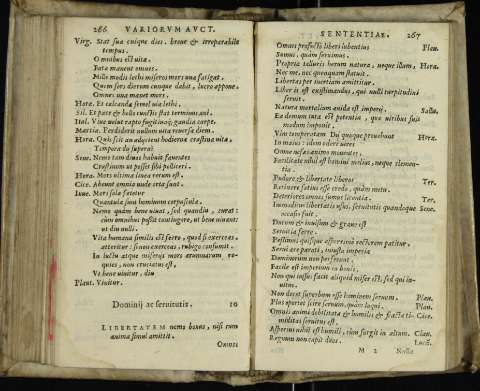 266 VARIORVM AVCT.
Virg. Stat sua cuique dies. breue & irreparabile
tempus.
Omnibus est vita.
Fata manent omneis.
Mille modis lethi miseros mors una fatigat.
Quem sors dierum cunque dabit, lucro appone.
Omneis una manet mors.
Hora. Et calcanda semel via lethi.
Sil. Et pace & bello cunctis stat terminus aui.
Iul. Viue uelut rapto fugitiuaq; gaudia carpe.
Martia. Perdiderit nullum vita reuersa diem.
Hora. Quis scit an adijciant hodiernae crastina vita,
Tempora dij superi?
Sene. Nemo tam diuos habuit fauentes
Crastinum ut posset sibi polliceri.
Hora. Mors vltima linea rerum est.
Cice. Abeunt omnia unde orta sunt.
Iuue. Mors sola fatetur
Quantula sint hominum corpuscula.
Nemo quàm bene viuat, sed quandiu, curat:
cùm omnibus possit contingere, ut bene viuant:
ut diu nulli.
Vita humana similis est ferro, quod si exerceas,
atteritur: si non exerceas, rubigo consumit.
In luctu atque miserijs mors aerumnarum re-
quies, non cruciatus est.
Vt bene viuitur, diu
Plaut. Viuitur.
Dominij ac seruitutis. 10
LIBERTATEM nemo bonus, nisi cum
anima simul amittit.
Omnes
SENTENTIAE. 267
Omnes profectò liberi lubentius Plau.
Sumus, quàm seruimus.
Propria telluris herum natura, neque illum, Hora.
Nec me, nec quenquam statuit.
Libertas per inertiam amittitur.
Liber is est existimandus, qui nulli turpitudini
seruit.
Natura mortalium auida est imperij. Sallu.
Ea demum tuta est potentia, quae viribus suis
modum imponit.
Vim temperatam Dij quoque prouehunt Hora.
In maius: idem odere vires
Omne nefas animo mouentes.
Facilitate nihil est homini melius, neque clemen-
tia.
Pudore & libertate liberos Ter.
Retinere satius esse credo, quàm metu.
Deteriores omnes sumus licentia. Ter.
In mediis libertatis usus, seruitutis quandoque Sene.
occasio fuit.
Durum & inuisum & graue est
Seruitia ferre.
Pessimus quisque asperrimè rectorem patitur.
Seruitute parati, iniusta imperia
Dominorum non perferunt.
Facile est imperium in bonis.
Non qui iussus facit aliquid miser est, sed qui in-
uitus.
Non decet superbum esse hominem seruum. Plau.
Plus oportet scire seruum, quàm loqui. Plau.
Omnis animi debilitata & humilis & fracta ti- Cice.
miditas seruitus est.
Asperius nihil est humili, cùm surgit in altum. Clau.
Regnum non capit duos. Lucā.
M 2 Nulla